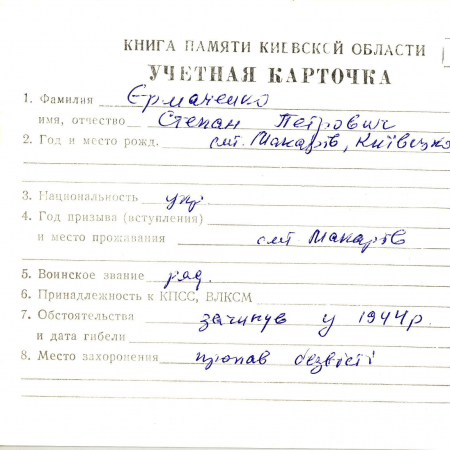 КНИГА ПАМЯТИ КИЕВСКОЙ ОБЛАСТИ
УЧЕТНАЯ КАРТОЧКА
1. Фамилия Єрманенко
имя, отчество Степан Петрович
2. Год и место рожд. смт. Макарів, Київсько
3. Национальность укр.
4. Год призыва (вступления)
и место проживания смт Макарів
5. Воинское звание ряд.
6. Принадлежность к КПСС, ВЛКСМ
7. Обстоятельства загинув у 1944 р.
и дата гибели
8. Место захоронения пропав безвісті